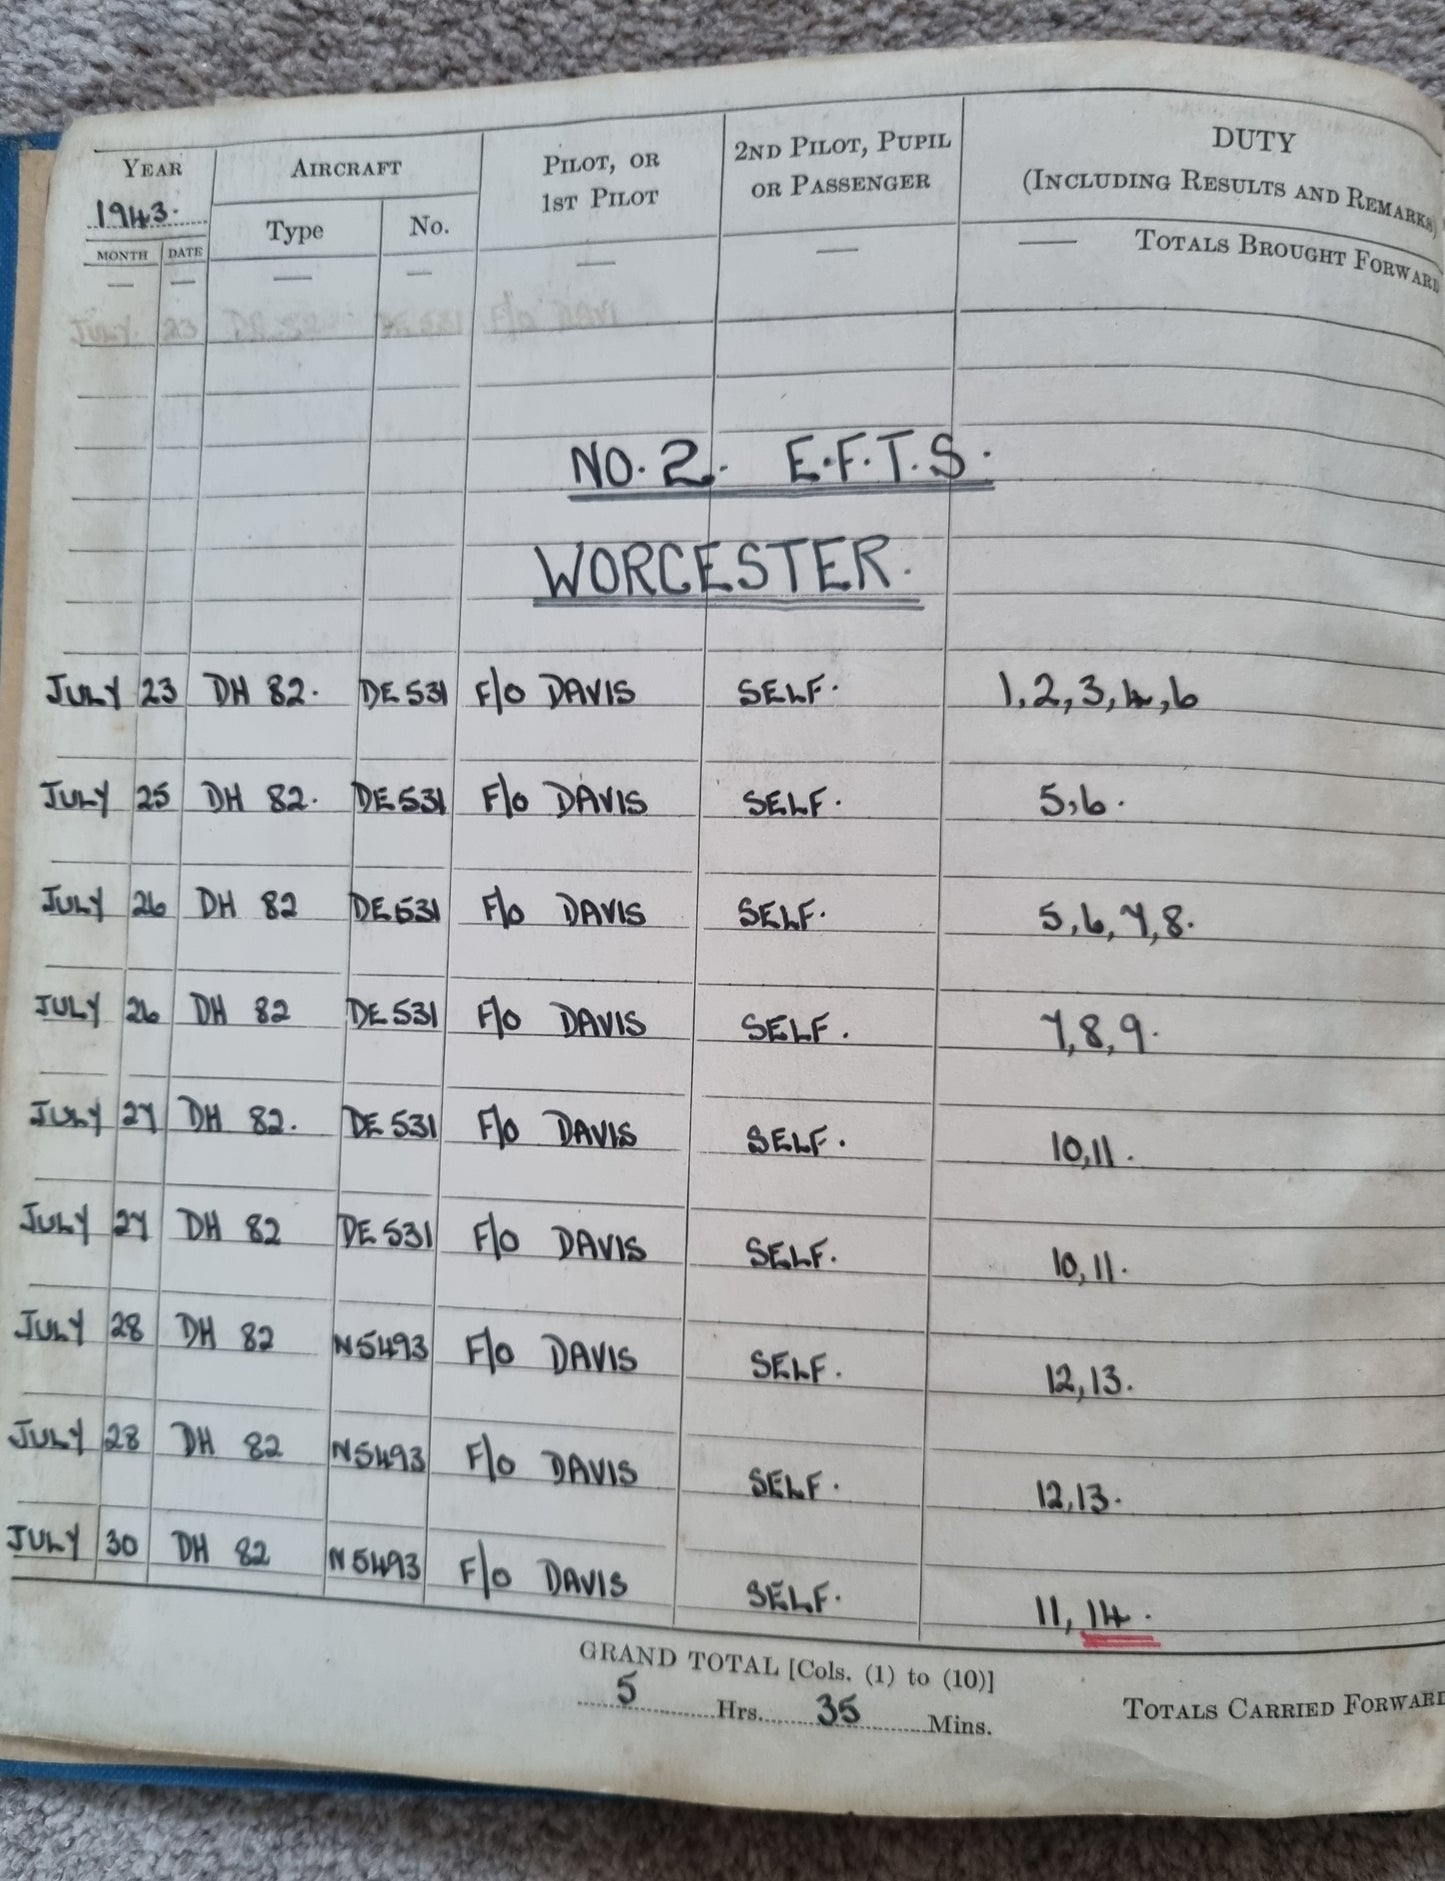 YEAR AIRCRAFT PILOT, OR 2ND PILOT, PUPIL DUTY
1943. 1ST PILOT OR PASSENGER (INCLUDING RESULTS AND REMARKS)
MONTH DATE Type No.
— — — — — — — TOTALS BROUGHT FORWARD
JULY 23
NO. 2. E.F.T.S.
WORCESTER.
JULY 23 DH 82. DE 531 F/O DAVIS SELF. 1,2,3,4,6
JULY 25 DH 82. DE531 F/O DAVIS SELF. 5,6.
JULY 26 DH 82 DE531 F/O DAVIS SELF. 5,6,7,8.
JULY 26 DH 82 DE 531 F/O DAVIS SELF. 7,8,9.
JULY 27 DH 82. DE 531 F/O DAVIS SELF. 10,11.
JULY 27 DH 82 DE 531 F/O DAVIS SELF. 10,11.
JULY 28 DH 82 N5493 F/O DAVIS SELF. 12,13.
JULY 28 DH 82 N5493 F/O DAVIS SELF. 12,13.
JULY 30 DH 82 N5493 F/O DAVIS SELF. 11, 14.
GRAND TOTAL [Cols. (1) to (10)]
5 Hrs. 35 Mins. TOTALS CARRIED FORWARD